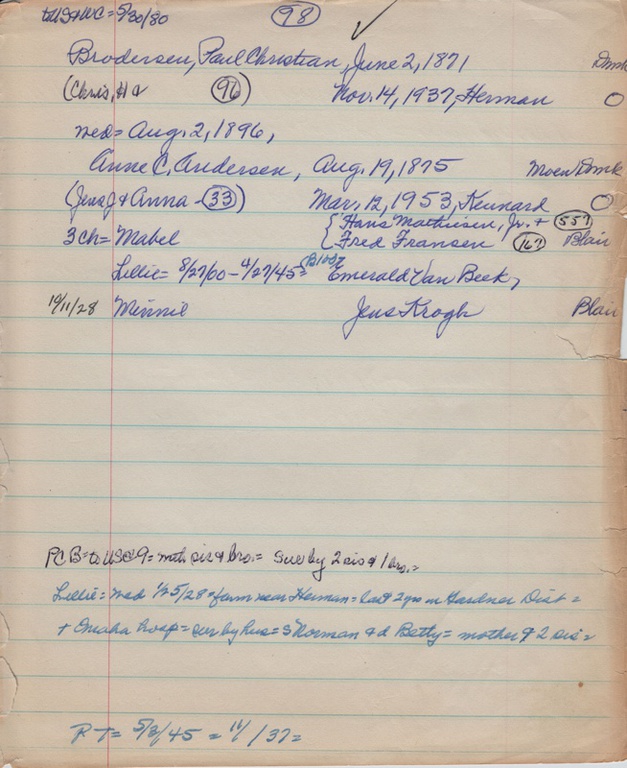 to US & WC = 5/30/80 98
Brodersen, Paul Christian, June 2, 1871 Dmk
(Chris, H & 96) Nov. 14, 1937, Herman O
med = Aug. 2, 1896,
Anne C. Andersen, Aug. 19, 1875 Moen Dmk
(Jens J & Anna - 33) Mar. 12, 1953, Kennard O
{ Hans Mathiesen, Jr. + 557
3 ch = Mabel { Fred Fransen 167 Blair
Lillie = 8/27/00 - 4/27/45 = Emerald Van Beek,
10/11/28 Minnie Jens Krogh Blair
PCB = to US @ 9 = moth sis & bro. = sur by 2 sis & 1 bro. =
Lillie = med 1/25/28 = farm near Herman = last 2 yrs in Gardner Dist =
+ Omaha hosp = sur by hus = s Norman & d Betty = mother & 2 sis =
R T = 5/3/45 = 11/ /37 =